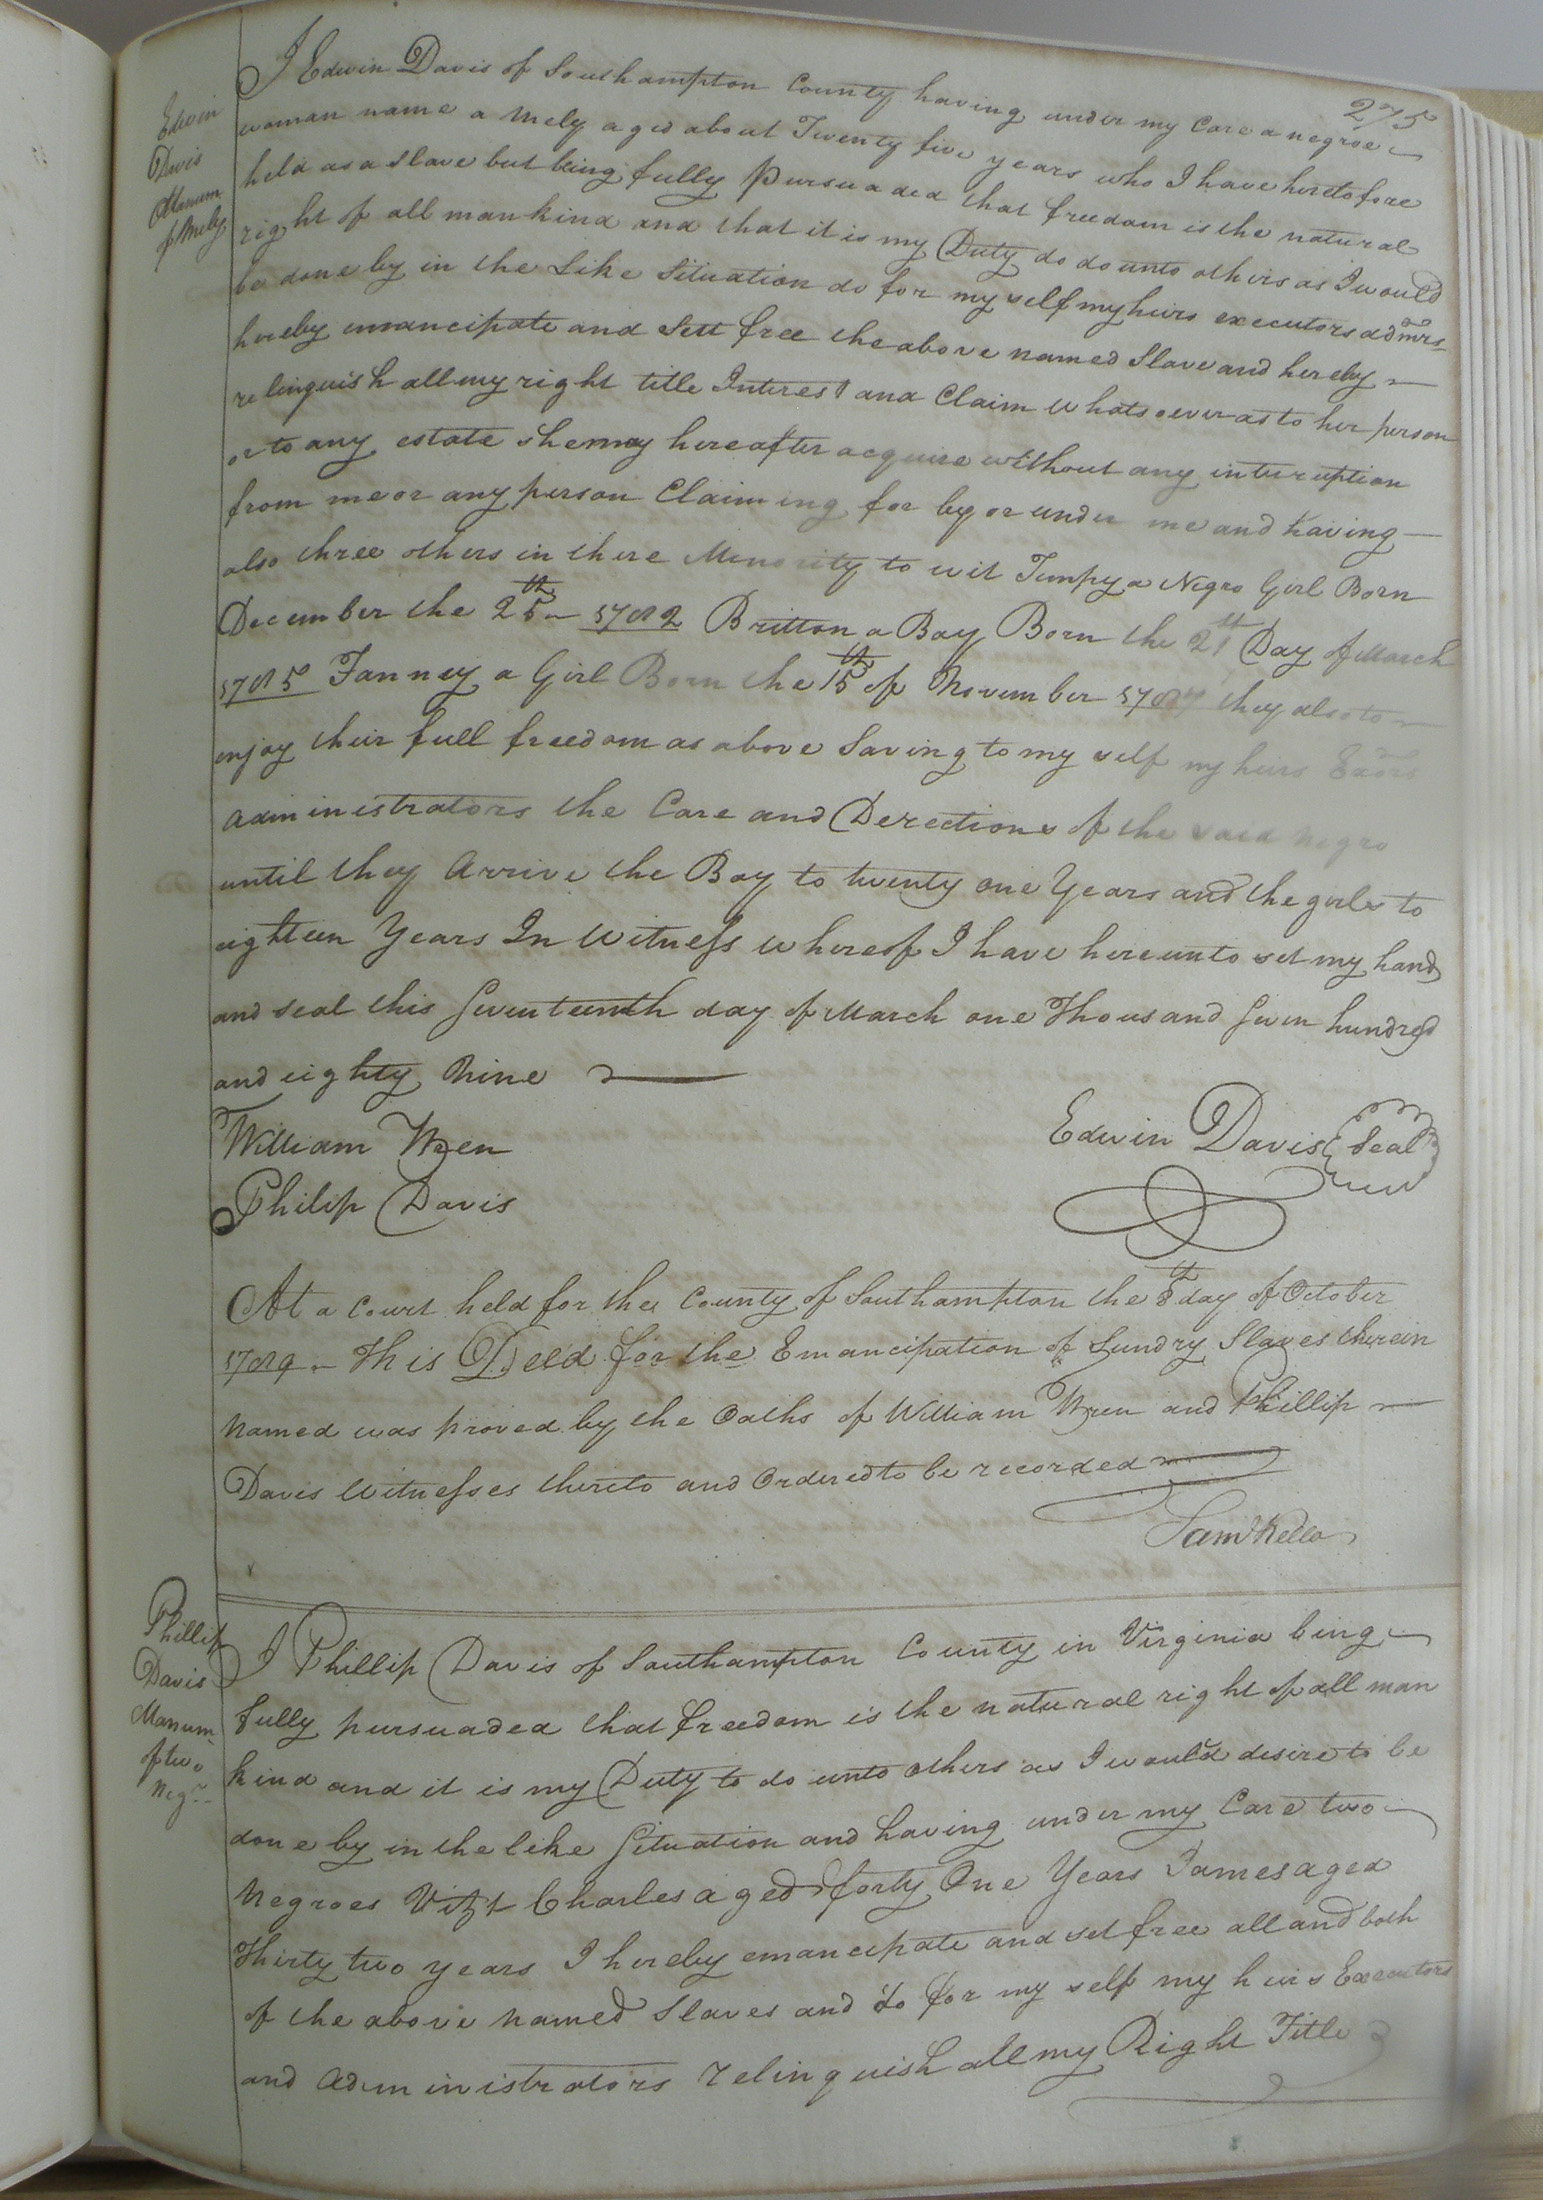 275
Edwin
Davis
Manum
of Mely
I Edwin Davis of Southampton County having under my Care a negroe
woman name a Mely aged about Twenty five years who I have heretofore
held as a slave but being fully Pursuaded that freedom is the natural
right of all mankind and that it is my Duty do do unto others as I would
be done by in the Like Situation do for my self my heirs executors admrs
hereby emancipate and Sett free the above named Slave and hereby
relinquish all my right title Interest and Claim whatsoever as to her person
or to any estate she may hereafter acquire without any interuption
from me or any person Claiming for by or under me and having
also three others in there Minority to wit Tempy a Negro Girl Born
December the 25th 1782 Britton a Boy Born the 21st Day of March
1785 Fanney a Girl Born the 15th of November 1787 they also to
enjoy their full freedom as above Saving to my self my heirs Exors
administrators the Care and Derections of the said negro
until they Arrive the Boy to twenty one Years and the girls to
eighteen Years In Witness whereof I have hereunto set my hand
and seal this Seventeenth day of March one Thousand Seven hundred
and eighty Nine
William Wren
Edwin Davis Seal
Philip Davis
At a Court held for the County of Southampton the 8th day of October
1789 This Deed for the Emancipation of Sundry Slaves therein
Named was proved by the Oaths of William Wren and Phillip
Davis Witnesses thereto and Ordered to be recorded
Saml Kello
Phillip
Davis
Manum
of two
Negrs
I Phillip Davis of Southampton County in Virginia being
fully pursuaded that freedom is the natural right of all man
kind and it is my Duty to do unto others as I would desire to be
done by in the like Situation and having under my Care two
Negroes Vizt Charles aged forty One Years James aged
Thirty two years I hereby emancipate and set free all and both
of the above named Slaves and do for my self my heirs Executors
and Administrators relinquish all my Right Title